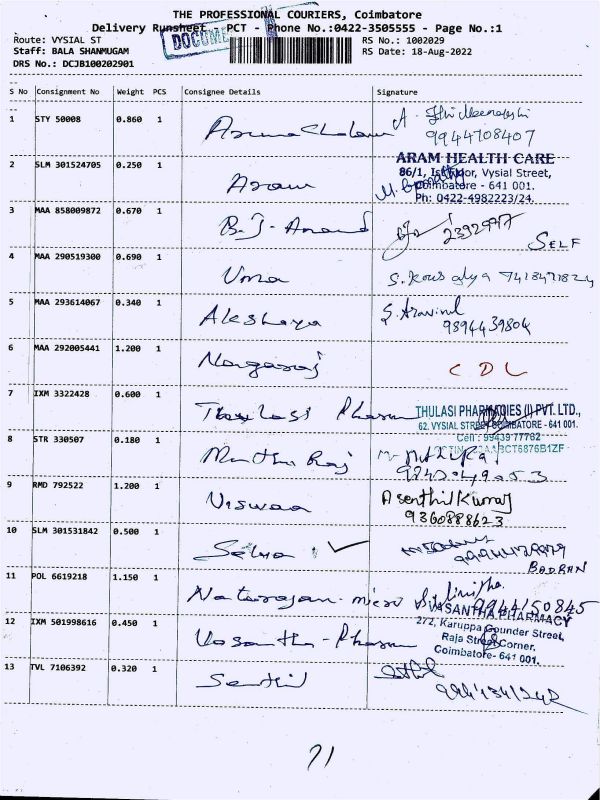 THE PROFESSIONAL COURIERS, Coimbatore
Delivery Runsheet - PCT - Phone No.:0422-3505555 - Page No.:1
Route: VYSIAL ST
RS No.: 1002029
Staff: BALA SHANMUGAM
RS Date: 18-Aug-2022
DRS No.: DCJB100202901
S No Consignment No Weight PCS Consignee Details Signature
1 STY 50008 0.860 1 Arunachalam A.
9944708407
ARAM HEALTH CARE
2 SLM 301524705 0.250 1 Aram 86/1, Vysial Street,
Coimbatore - 641 001.
Ph: 0422-4982223/24.
3 MAA 858009872 0.670 1 B.J-Anand
SELF
4 MAA 290519300 0.690 1 Uma
5 MAA 293614067 0.340 1 Akshaya S. Aravind
9894439804
6 MAA 292005441 1.200 1 Nagaraj CDL
7 IXM 3322428 0.600 1 Thulasi Pharm THULASI PHARMACIES (I) PVT. LTD.,
62, VYSIAL STREET, COIMBATORE - 641 001.
Cell : 99439 77762
8 STR 330507 0.180 1 Muthu Raj
9 RMD 792522 1.200 1 Viswaa A Senthil Kumar
9360888623
10 SLM 301531842 0.500 1 Selva
BADRAN
11 POL 6619218 1.150 1 Natarajan-micro
9944150845
VASANTHA PHARMACY
12 IXM 501998616 0.450 1 Vasantha-Pharm 2/2, Karuppa Gounder Street,
Raja Street Corner,
Coimbatore- 641 001.
13 TVL 7106392 0.320 1 Senthil